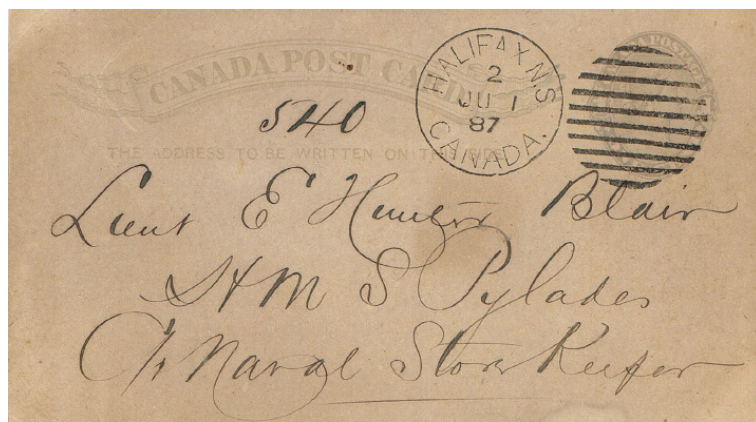 CANADA POST CARD
HALIFAX N.S
2
JU 1
87
CANADA.
540
THE ADDRESS TO BE WRITTEN ON THIS SIDE
Lieut E Hunter Blair
H M S Pylades
C/o Naval Store Keeper